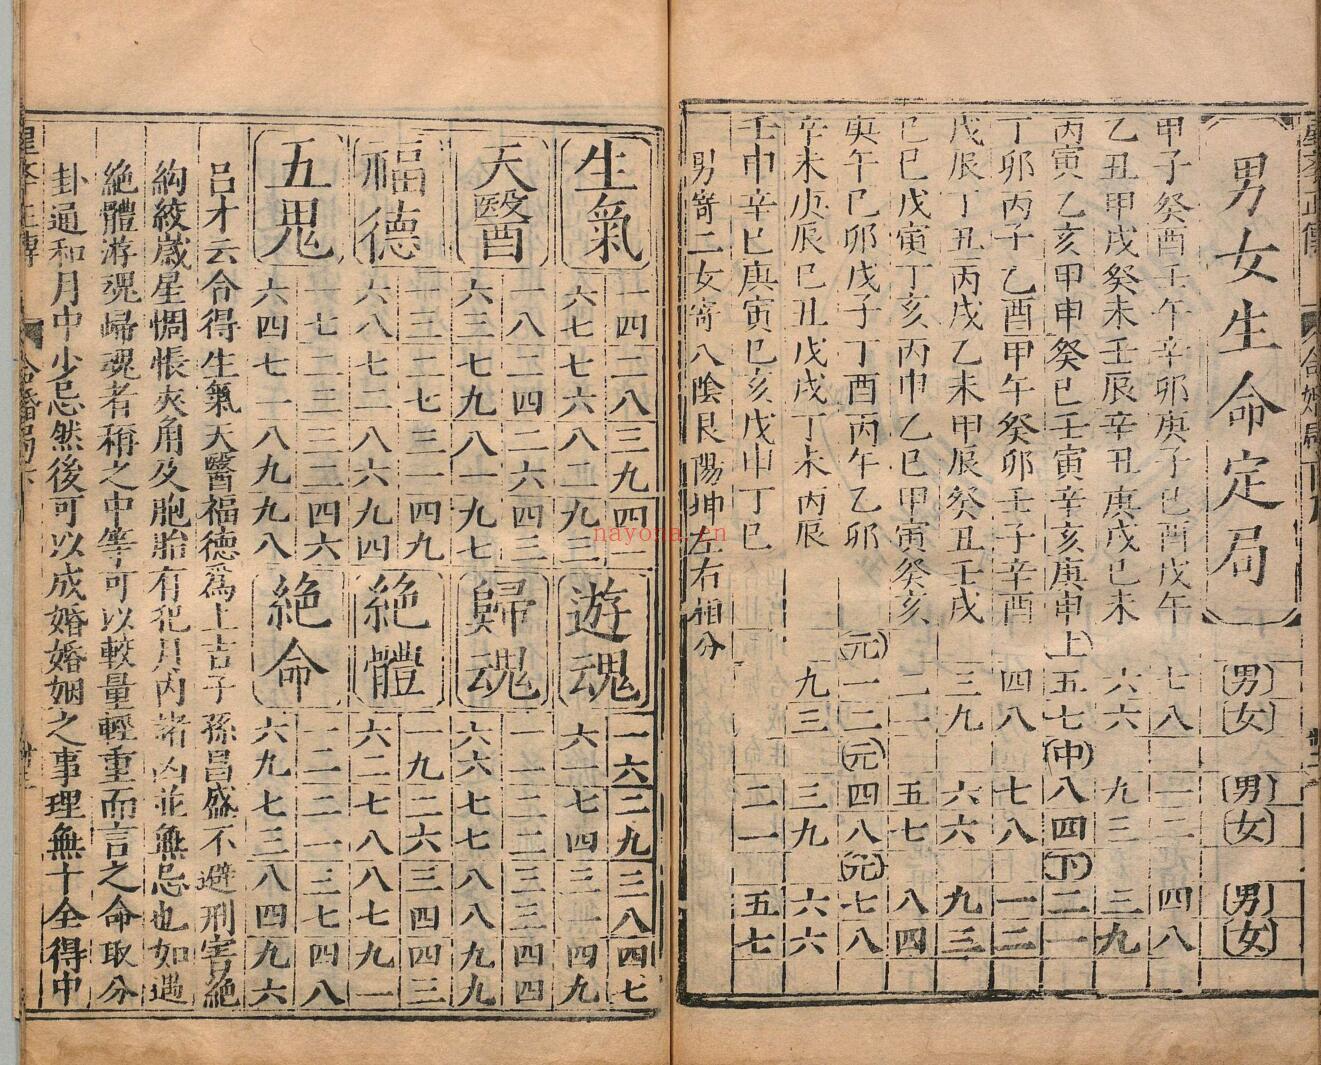 男女生命定局
男女
男女
男女
甲子癸酉壬午辛卯庚子己酉戊午
七八
一二
四八
乙丑甲戌癸未壬辰辛丑庚戌己未
六六
九三
三九
丙寅乙亥甲申癸巳壬寅辛亥庚申
上
五七
中
八四
下
二一
丁卯丙子乙酉甲午癸卯壬子辛酉
四八
七八
一二
戊辰丁丑丙戌乙未甲辰癸丑壬戌
三九
六六
九三
己巳戊寅丁亥丙申乙巳甲寅癸亥
二一
五七
八四
庚午己卯戊子丁酉丙午乙卯
元
一二
元
四八
元
七八
辛未庚辰己丑戊戌丁未丙辰
九三
三九
六六
壬申辛巳庚寅己亥戊申丁巳
二一
五七
男寄二女寄八陰艮陽坤左右相分
生氣
一四二八三九四一
六七七六八二九三
遊魂
一六二九三八四七
六一七四八三九二
天醫
一八二四二六四三
六三七九八一九七
歸魂
一一二二三三四四
六六七七八八九九
福德
一三二七三一四九
六八七二八六九四
絶體
一九二六三四四三
六二七八八七九一
五鬼
一七二三三二四六
六四七一八九九八
絶命
一二二一三七四八
六九七三八四九六
吕才云合得生氣天醫福德爲上吉子孫昌盛不避刑害絕
絢絞歲星惆悵夾角及胞胎有犯月內諸凶並無忌也如遇
絶體游魂歸魂者稱之中等可以較量輕重而言之命取分
卦通和月中少忌然後可以成婚婚姻之事理無十全得中
合婚
nayona.cn